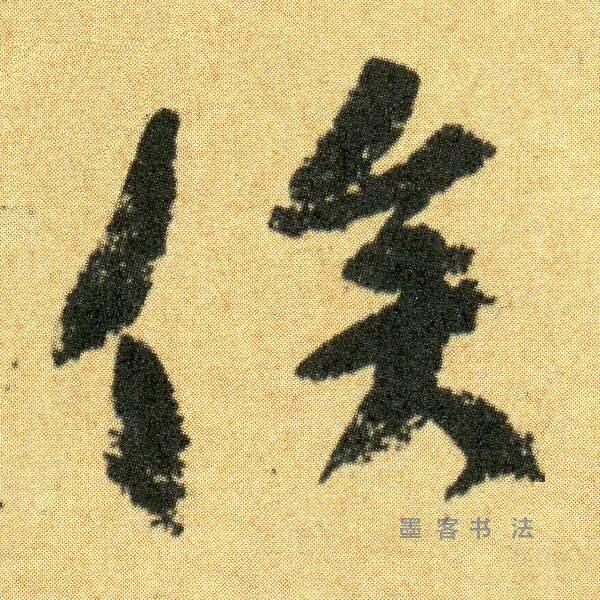 俟
墨客书法